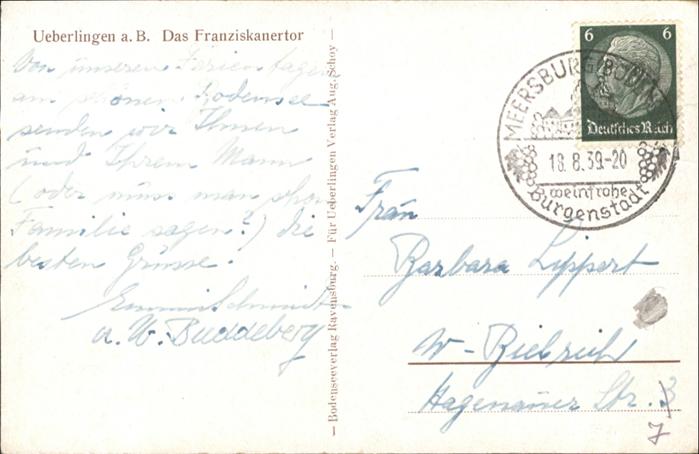 Ueberlingen a. B. Das Franziskanertor
Von unseren Ferientagen
am schönen Bodensee
senden wir Ihnen
und Ihrem Mann
(oder muss man schon
Familie sagen?) die
besten Grüsse.
Emmi Schmidt
u. W. Buddeberg
— Bodenseeverlag Ravensburg. — Für Ueberlingen Verlag Aug. Schoy —
6 6
Deutsches Reich
MEERSBURG BODENSEE
18.8.39.-20
weinfrohe
Burgenstadt
Frau
Barbara Lippert
W-Biebrich
Hagenauer Str. 3
7